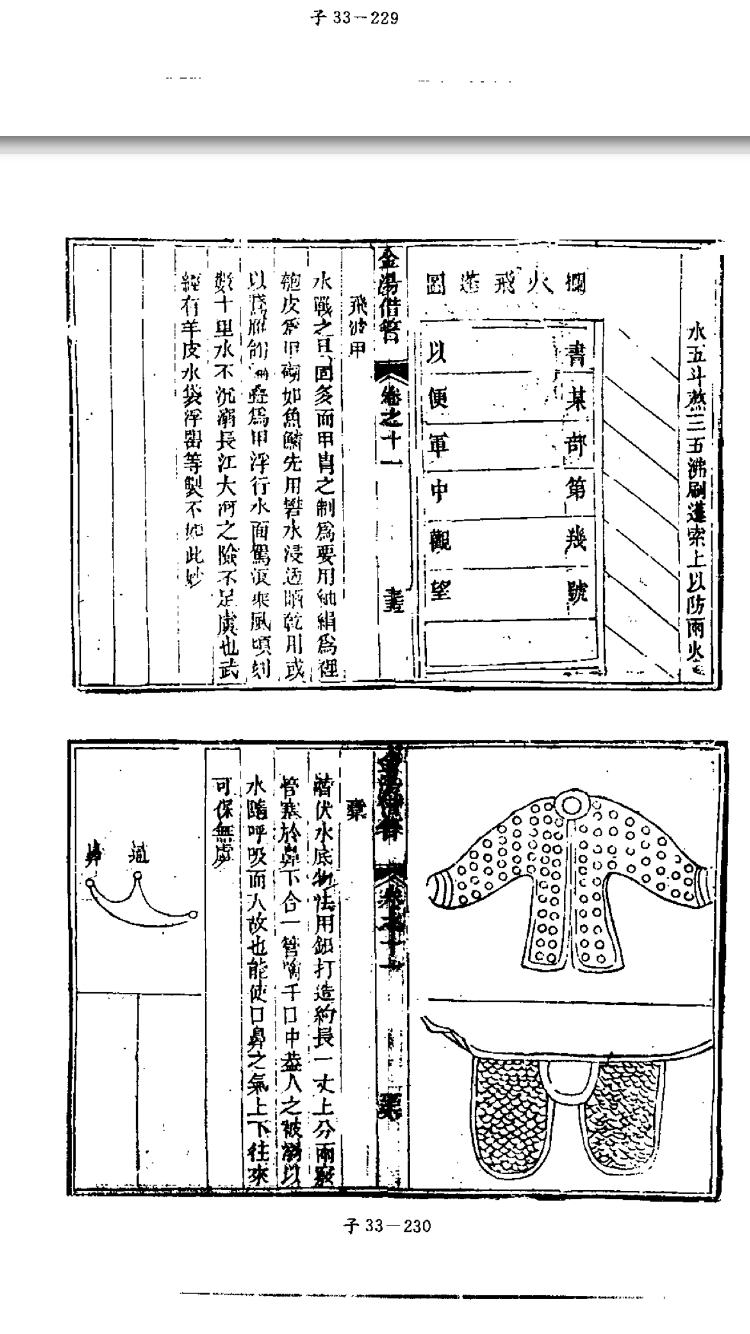 子33—229
水五斗熬三五沸刷蓬索上以防雨火
攔火飛蓬圖
書某部第幾號
以便軍中觀望
金湯借箸
卷之十一
飛波甲
水戰之具固多而甲胄之制為要用紬絹為裡
皮為甲砌如魚鱗先用礬水浸透晒乾用或
以 為甲浮行水面駕浪乘風頃刻
數十里水不沉溺長江大河之險不足虞也武
經有羊皮水袋浮罌等製不如此妙
金湯借箸
卷之十一
潛伏水底 法用銀打造約長一丈上分兩竅
管塞於鼻下合一管啣于口中蓋人之被溺以
水隨呼吸而入故也能使口鼻之氣上下往來
可保無虞
通鼻
子33—230